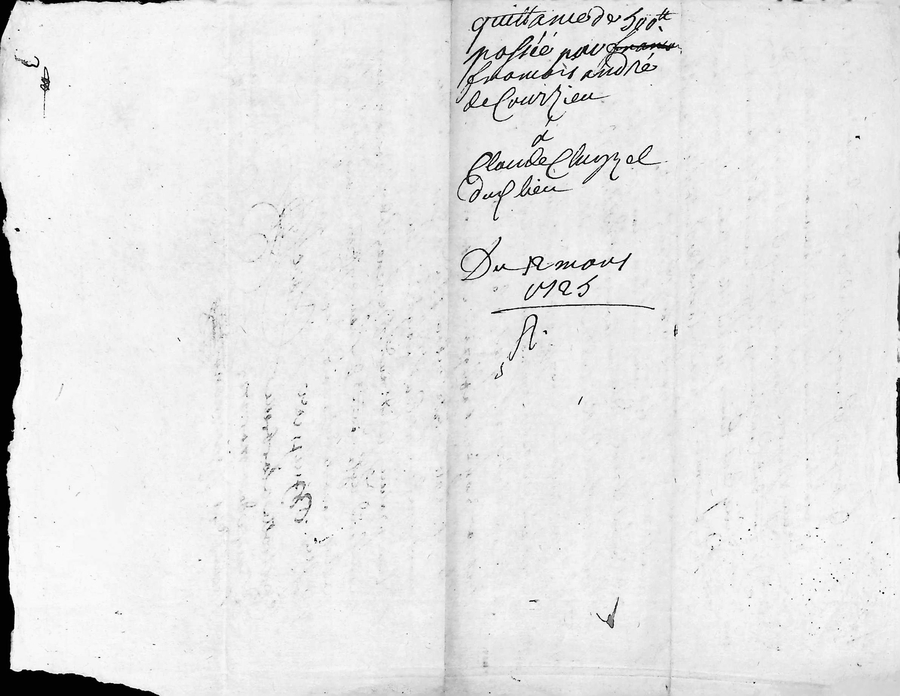 quittance de 500ᵗᵗ
passée par
francois andré
de Courzieu
a
Claude
dud lieu
Du 12 mars
1725